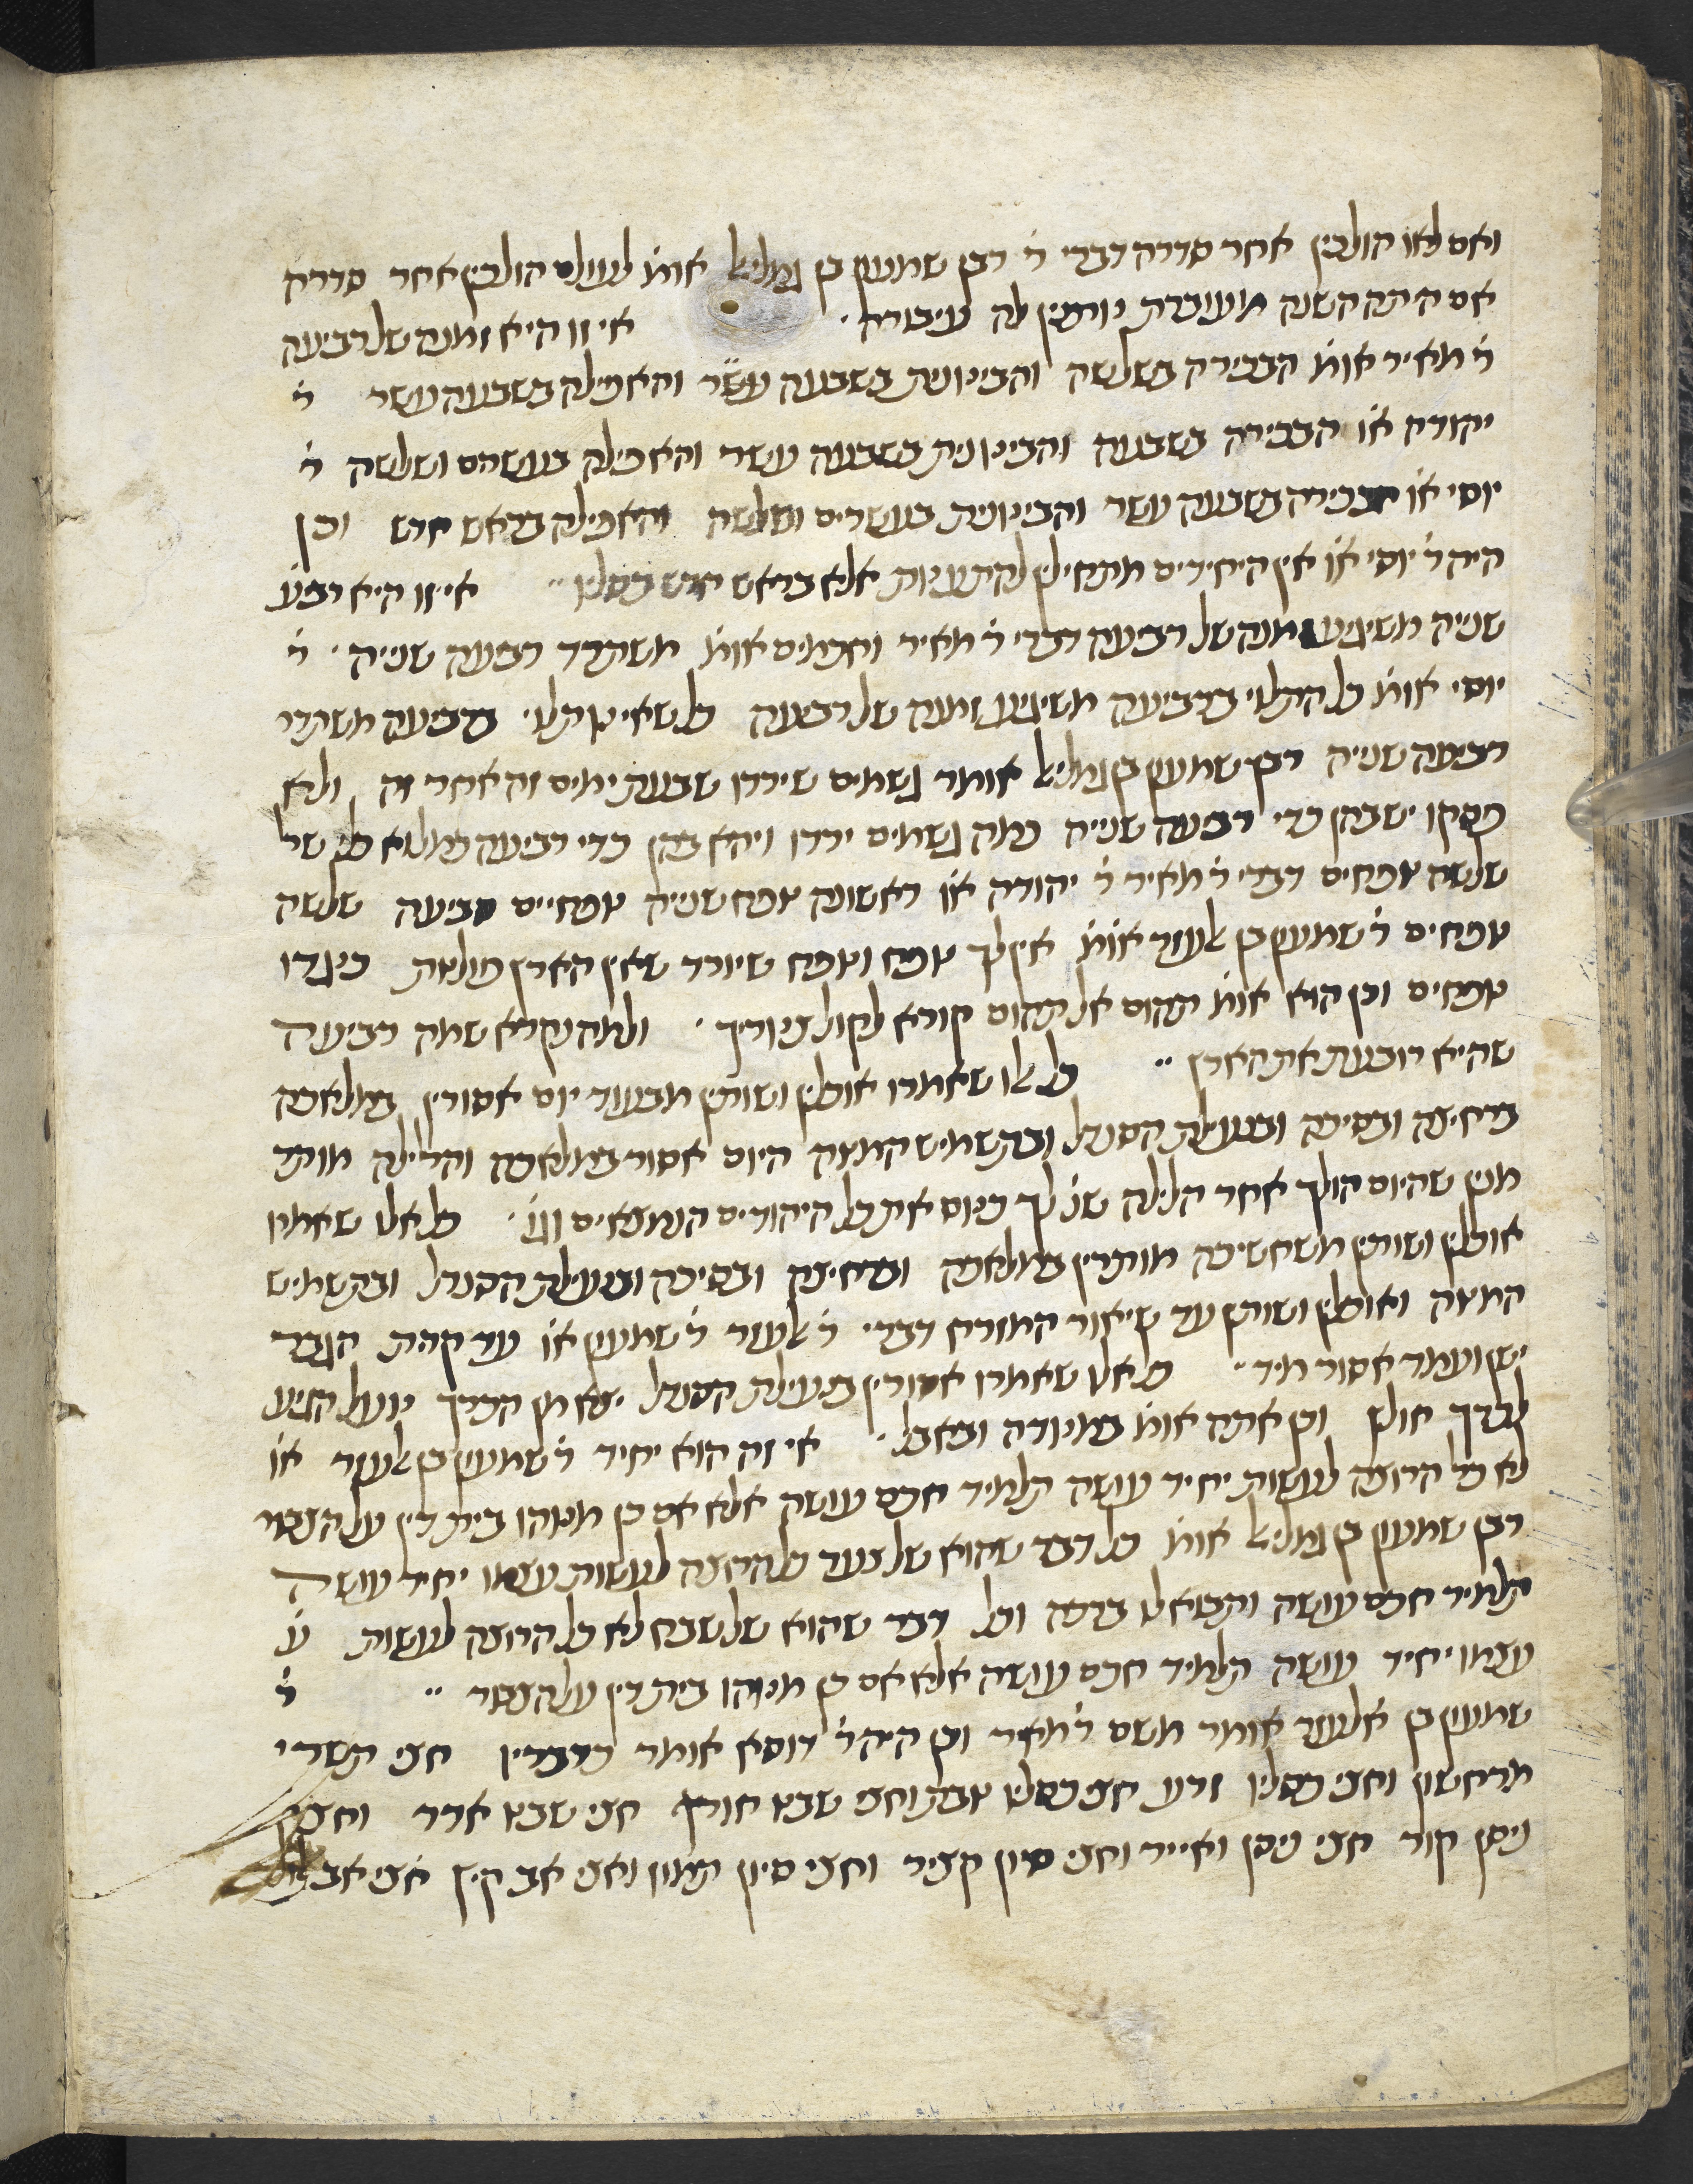 ואם לאו הולכין אחר סדרה דברי ר׳ רבן שמעון בן גמליאל אומ׳ לעולם הולכין אחר סדרה
אם היתה השנה מעוברת נותנין לה עיבורה · אי זו היא זמנה של רביעה
ר׳ מאיר אומ׳ הבכירה בשלשה והבינונית בשבעה עשר והאפילה בשבעה עשר ר׳
יהודה או׳ הבכירה בשבעה והבינונית בשבעה עשר והאפילה בעשרים ושלשה ר׳
יוסי או׳ הבכירה בשבעה עשר והבינונית בעשרים ושלשה והאפילה בראש חדש וכן
היה ר׳ יוסי או׳ אין היחידים מתחילין להתענות אלא בראש חדש כסליו ·· אי זו היא רביע׳
שנייה משיגיע זמנה של רביעה דברי ר׳ מאיר וחכמים אומ׳ משתרד רביעה שנייה · ר׳
יוסי אומ׳ כל התלוי ברביעה משיגיע זמנה של רביעה כל שאינו תלוי ברביעה משתרד
רביעה שנייה רבן שמעון בן גמליאל אומר גשמים שירדו שבעת ימים זה אחר זה ולא
פסקו יש בהן כדי רביעה שנייה כמה גשמים ירדו ויהא בהן כדי רביעה כמלוא כלי של
שלשה טפחים דברי ר׳ מאיר ר׳ יהודה או׳ ראשונה טפח שנייה טפחיים רביעה שלשה
טפחים ר׳ שמעון בן לעזר אומ׳ אין לך טפח וטפח שיורד שאין הארץ מולאת כנגדו
טפחים וכן הוא אומ׳ תהום אל תהום קורא לקול צינוריך · ולמה נקרא שמה רביעה
שהיא רובעת את הארץ ·· כל אלו שאמרו אוכלין ושותין מבעוד יום אסורין במלאכה
ברחיצה ובסיכה ובנעילת הסנדל ובתשמיש המטה היום אסור במלאכה והלילה מותר
מנין שהיום הולך אחר הלילה שנ׳ לך כנוס את כל היהודים הנמצאים וגו׳ · כל אלו שאמרו
אוכלין ושותין משחשיכה מותרין במלאכה וברחיצה ובסיכה ובנעילת הסנדל ובתשמיש
המטה ואוכלין ושותין עד שיאור המזרח דברי ר׳ לעזר ר׳ שמעון או׳ עד קרות הגבר
ישן ועמד אסור מיד ·· כל אלו שאמרו אסורין בנעילת הסנדל יצא מן הכרך נועל הגיע
לכרך חולץ וכן אתה אומ׳ במנודה ובאבל · אי זה הוא יחיד ר׳ שמעון בן לעזר או׳
לא כל הרוצה לעשות יחיד עושה תלמיד חכם עושה אלא אם כן מינוהו בית דין על הצבור
רבן שמעון בן גמליאל אומ׳ כל דבר שהוא של צער כל הרוצה לעשות עצמו יחיד עושה
תלמיד חכם עושה ותבוא לו ברכה וכל דבר שהוא של שבח לא כל הרוצה לעשות ע
עצמו יחיד עושה תלמיד חכם עושה אלא אם כן מינוהו בית דין על הצבור ·· ר׳
שמעון בן אלעזר אומר משם ר׳ מאיר וכן היה ר׳ דוסא אומר כדבריו חצי תשרי
מרחשון וחצי כסליו זרע חצי כסליו טבת וחצי שבט חורף חצי שבט אדר וחצי
ניסן קור חצי ניסן ואייר וחצי סיון קציר וחצי סיון תמוז וחצי אב קיץ חצי אב